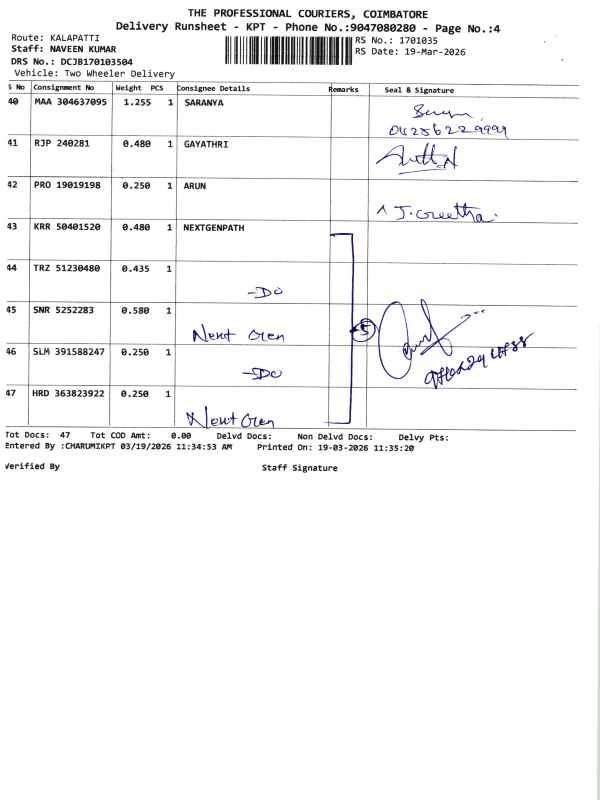 THE PROFESSIONAL COURIERS, COIMBATORE
Delivery Runsheet - KPT - Phone No.:9047080280 - Page No.:4
Route: KALAPATTI
RS No.: 1701035
Staff: NAVEEN KUMAR
RS Date: 19-Mar-2026
DRS No.: DCJB170103504
Vehicle: Two Wheeler Delivery
S No Consignment No Weight PCS Consignee Details Remarks Seal & Signature
40 MAA 304637095 1.255 1 SARANYA
04256229999
41 RJP 240281 0.480 1 GAYATHRI
42 PRO 19019198 0.250 1 ARUN
J. Greetha.
43 KRR 50401520 0.480 1 NEXTGENPATH
44 TRZ 51230480 0.435 1
-Do
45 SNR 5252283 0.580 1
5
Next Gen
46 SLM 391588247 0.250 1
-Do
47 HRD 363823922 0.250 1
Next Gen
Tot Docs: 47 Tot COD Amt: 0.00 Delvd Docs: Non Delvd Docs: Delvy Pts:
Entered By :CHARUMIKPT 03/19/2026 11:34:53 AM Printed On: 19-03-2026 11:35:20
Verified By Staff Signature